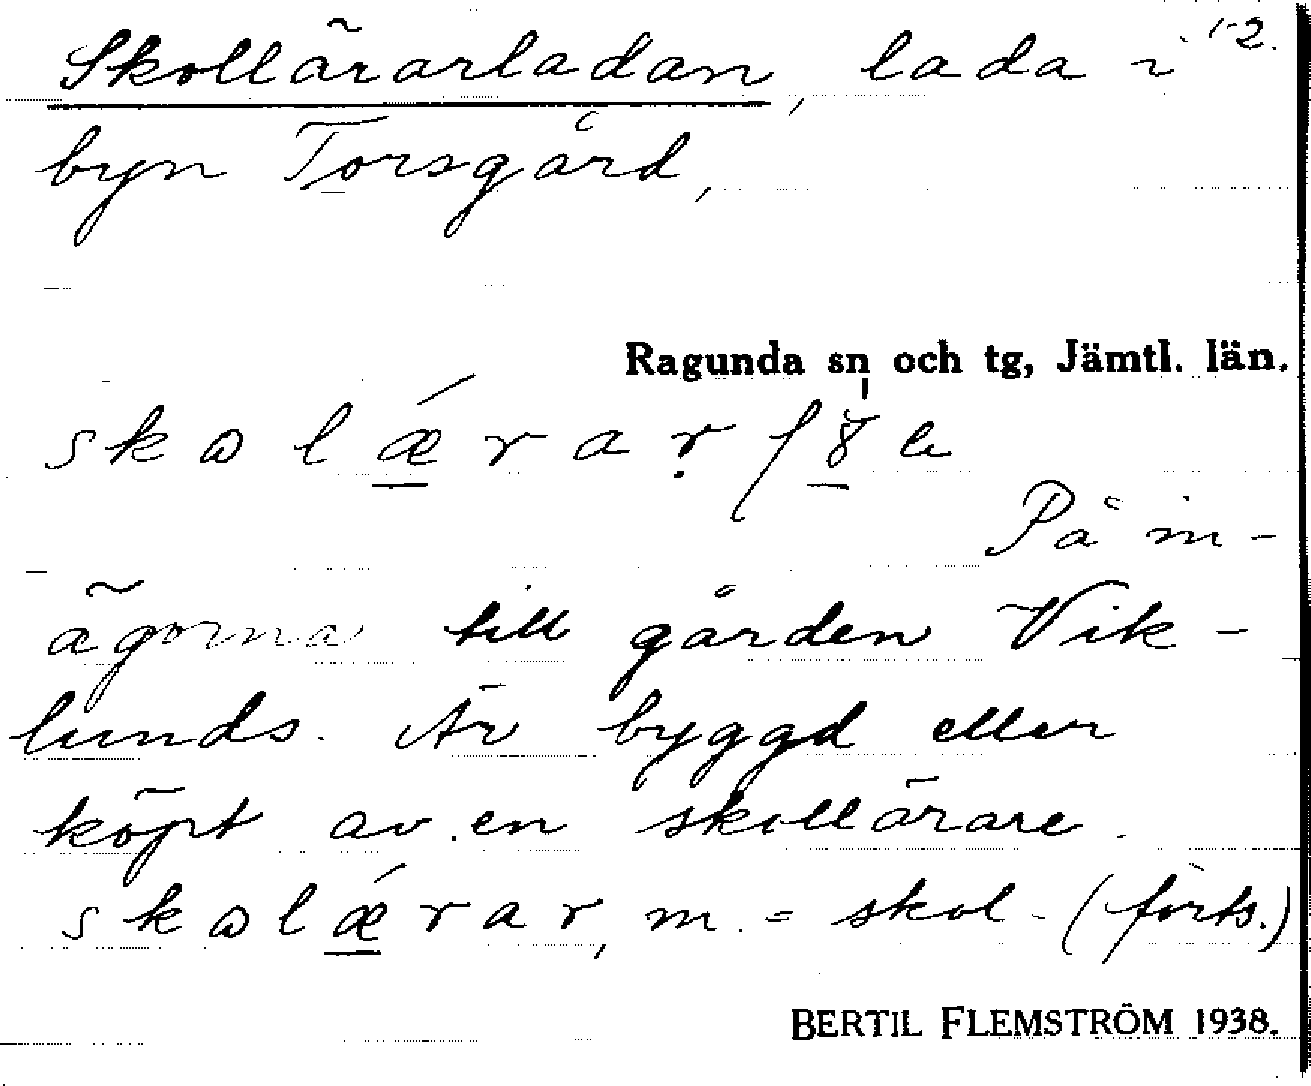 Skollärarladan, lada i 1-2.
byn Torsgård,
Ragunda sn och tg, Jämtl. län.
På in-
ägorna till gården Vik-
lunds. Är byggd eller
köpt av en skollärare.
skωlǽrar, m. = skol- (forts.)
BERTIL FLEMSTRÖM 1938.